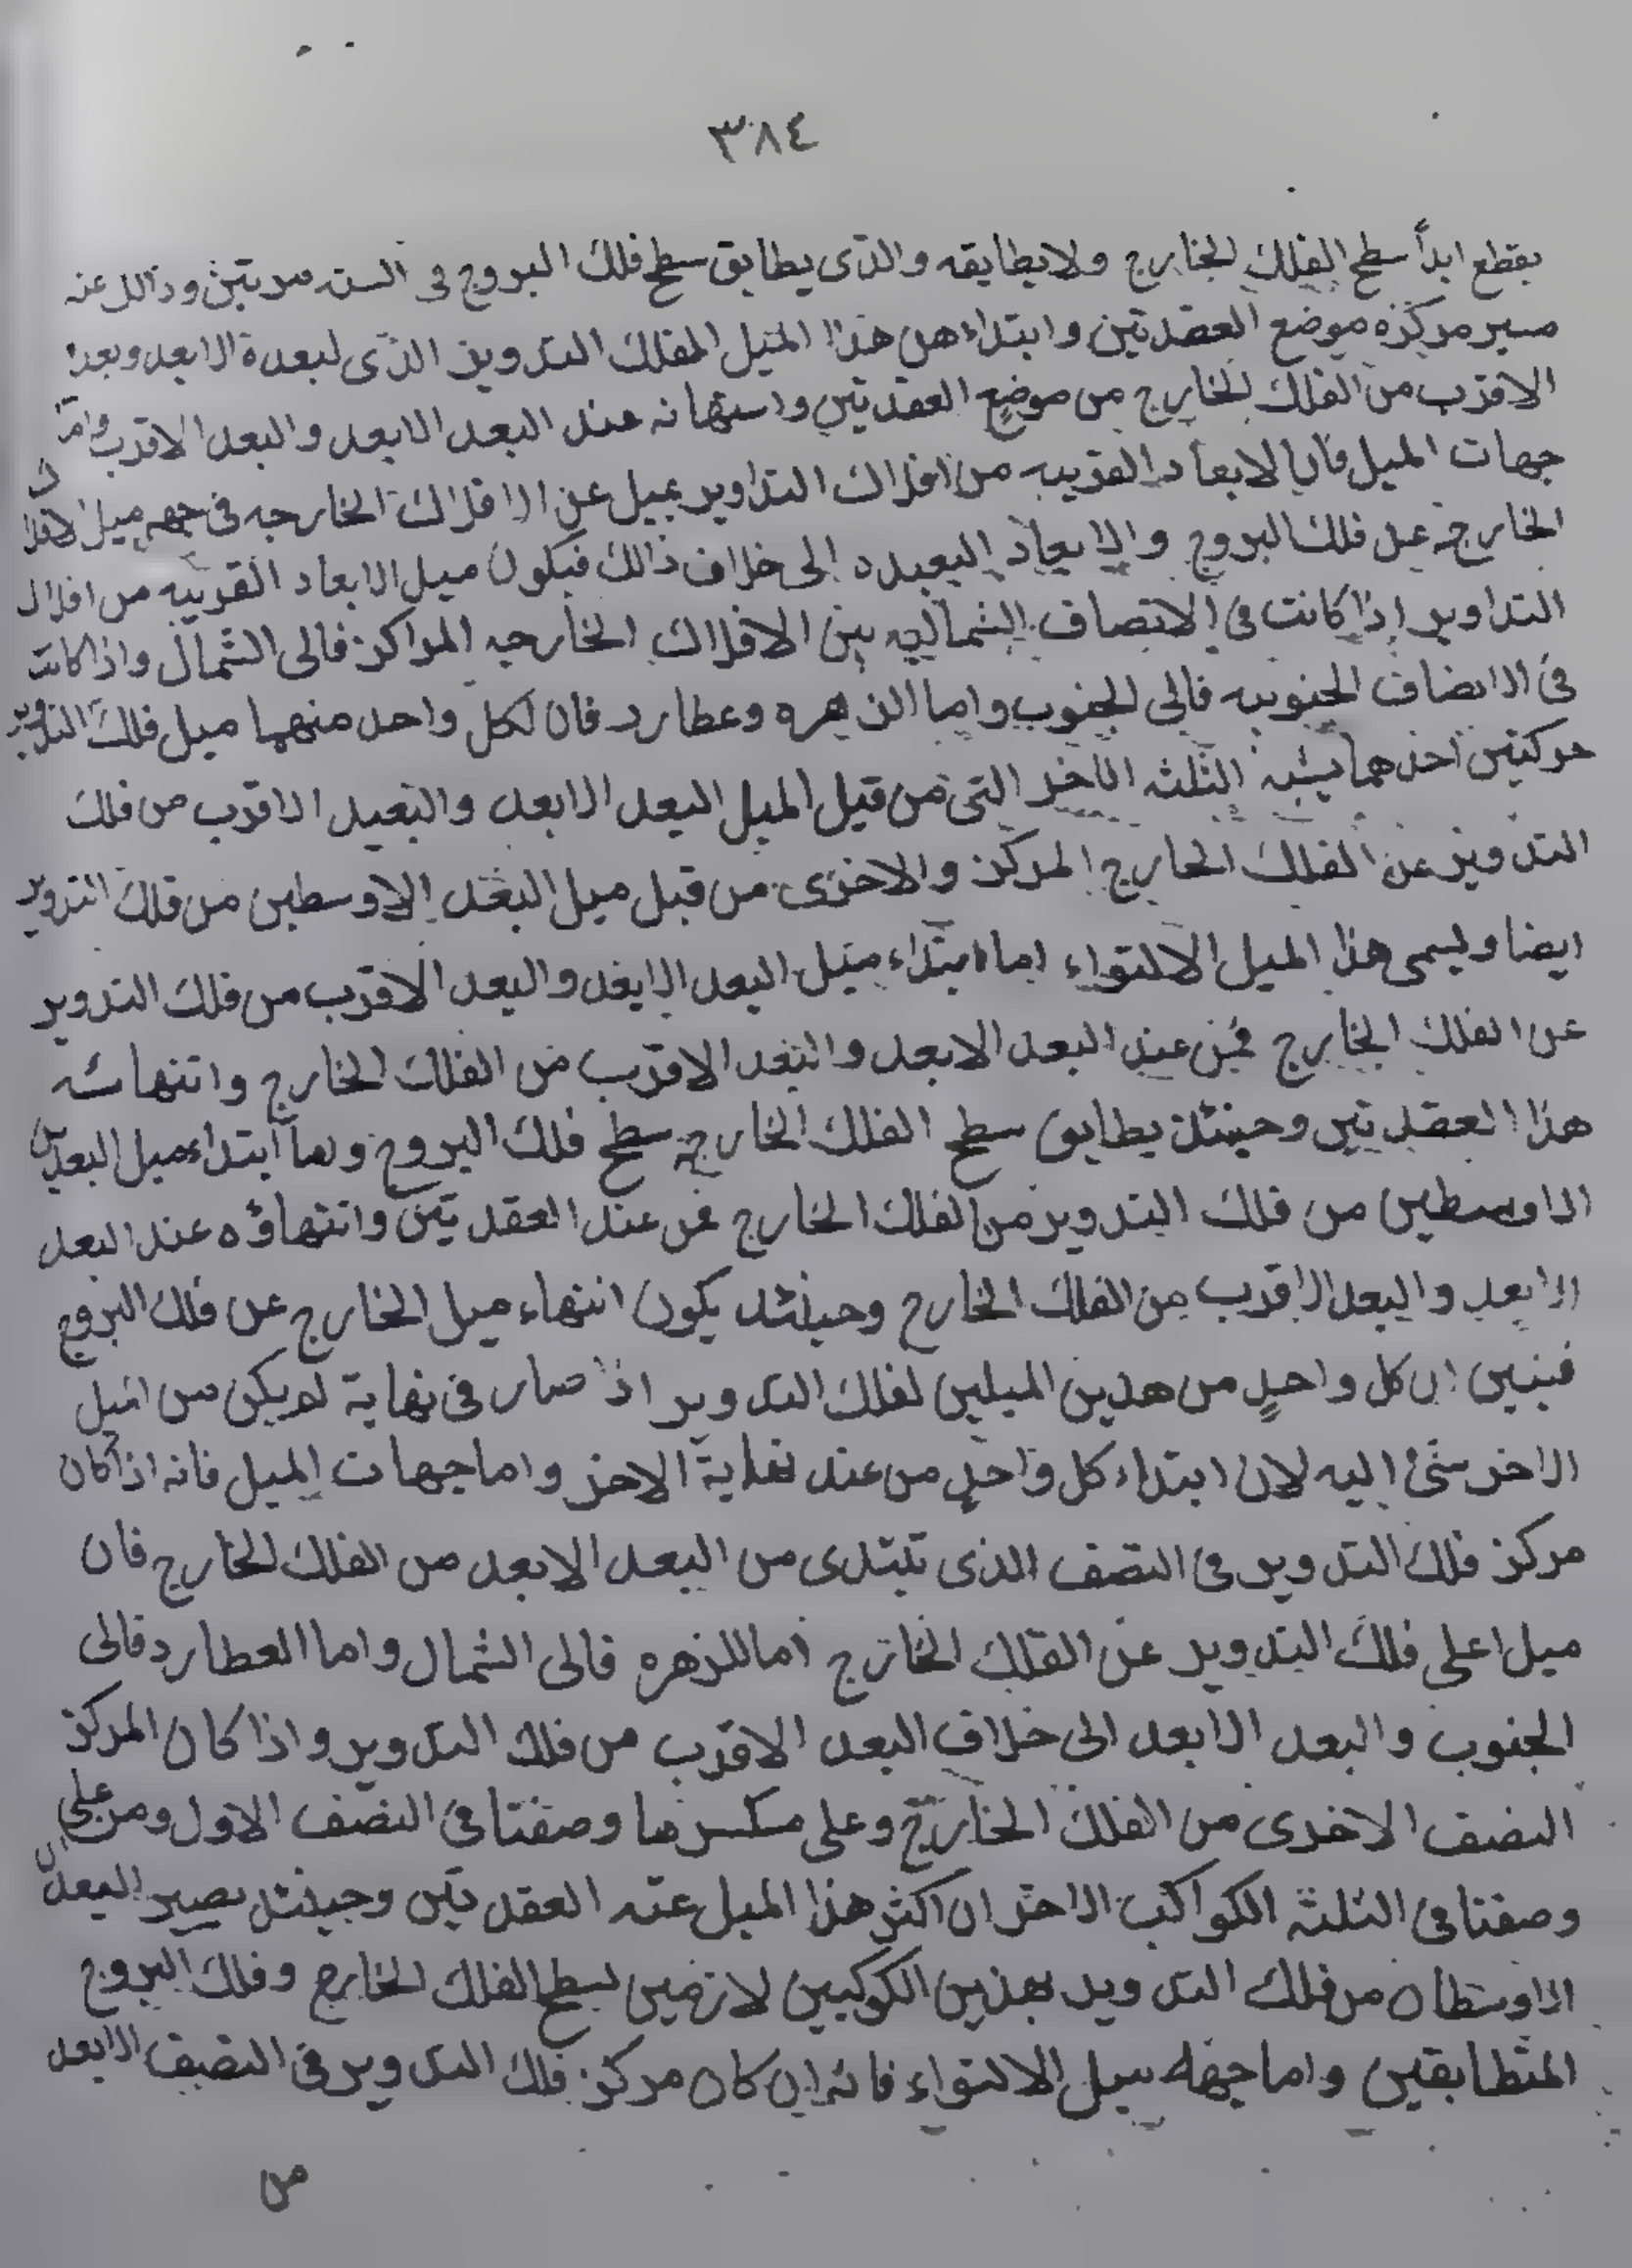 ٣٨٤
يقطع ابداً سطح الفلك الخارج ولا يطابقه والذى يطابق سطح فلك البروج فى السنه مرتين وذالك عنه
مسير مركزه موضع العقدتين وابتداء هن هذا الميل المفلك التدوين الذى لبعدة الابعد وبعد
الاقرب من الفلك الخارج من موضع العقدتين واستهانه عند البعد الابعد والبعد الاقرب واما
جهات الميل فان الابعاد القريبه من افلاك التداوير يميل عن الافلاك الخارجه فى جهه ميل الافلاك
الخارجه عن فلك البروج والابعاد البعيده الى خلاف ذالك فيكون ميل الابعاد القريبه من افلاك
التداوير اذا كانت فى الانصاف الشماليه بين الافلاك الخارجيه المراكز فالى الشمال واذا كانت
فى الانضاف الجنوبيه فالى الجنوب واما الزهره وعطارد فان لكل واحد منهما ميل فلك التدوير
حركتين احدهما يشبه الثلثه الاخر التى من قبل الميل البعد الابعد والبعيد الاقرب من فلك
التدوير عن الفلك الخارج المركز والاخرى من قبل ميل البعد الاوسطين من فلك التدوير
ايضا وليسمى هذا الميل الالتواء اما ابتداء ميل البعد الابعد والبعد الاقرب من فلك التدوير
عن الفلك الخارج فمن عند البعد الابعد والبعد الاقرب من الفلك الخارج وانتهائه
هذا العقدتين وحينئذ يطابق سطح الفلك الخارجه سطح فلك البروج وما ابتداء ميل البعدين
الاوسطين من فلك التدوير من الفلك الخارج فمن عند العقدتين وانتهاؤه عند البعد
الابعد والبعد الاقرب من الفلك الخارج وحينئذ يكون انتهاء ميل الخارج عن فلك البروج
فبنين ان كل واحدٍ من هدين الميلين لفلك التدوير اذا صار فى نهاية لم يكن من الميل
الاخر شئ اليه لان ابتداء كل واحدٍ من عند نهاية الاخر واما جهات الميل فانه اذا كان
مركز فلك التدوير فى النصف الذى تبتدى من البعد الابعد من الفلك الخارج فان
ميل اعلى فلك التدوير عن الفلك الخارج اما للزهره فالى الشمال واما العطارد فالى
الجنوب والبعد الابعد الى خلاف البعد الاقرب من فلك التدوير واذا كان المركز
النصف الاخرى من الفلك الخارج وعلى مكس ما وصفنا فى النصف الاول ومن على
وصفنا فى الثلثه الكواكب الاخر ان اكثر هذا الميل عنه العقدتين وحينئذ يصير البعدان
الاوسطان من فلك التدوير بهذين الكوكبين لازمين لسطح الفلك الخارج وفلك البروج
المتطابقين واما جهه ميل الالتواء فانه ان كان مركز فلك التدوير فى النصف الابعد
من